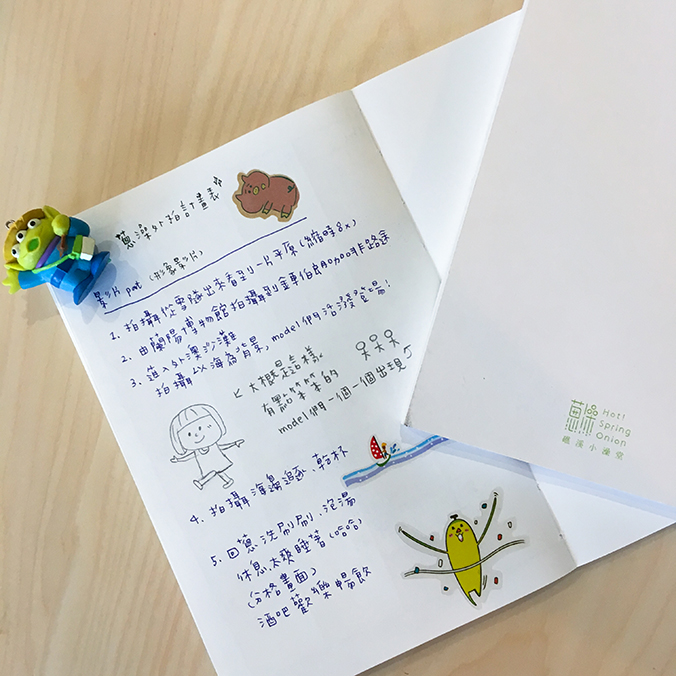 蔥澡外拍計畫表
影片 part (形象影片)
1. 拍攝從雪隧出來看到一片平原(縮時8x)
2. 由蘭陽博物館拍攝到金車伯朗咖啡路途
3. 進入外澳沙灘
拍攝以海為背景, model們活潑登場!
大概是這樣
有點笨笨的
model們一個一個出現
4. 拍攝海灘追逐、乾杯
5. 回蔥洗刷刷、泡湯
休息太爽睡著(哈哈)
(分格畫面)
酒吧歡樂暢飲
蔥澡
Hot!
Spring
Onion
礁溪小澡堂